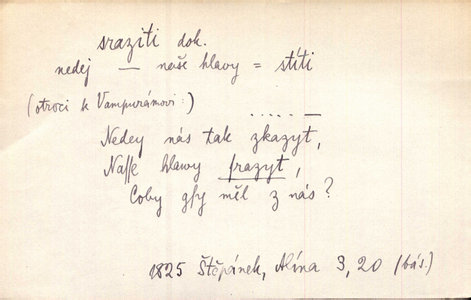 sraziti dok.
nedej — naše hlavy = stíti
(otroci k Vampuránovi:)
..... —
Nedey nás tak zkazyt,
Naſſe hlawy ſrazyt,
Coby gſy měl z nás?
1825 Štěpánek, Alína 3, 20 (bás.)